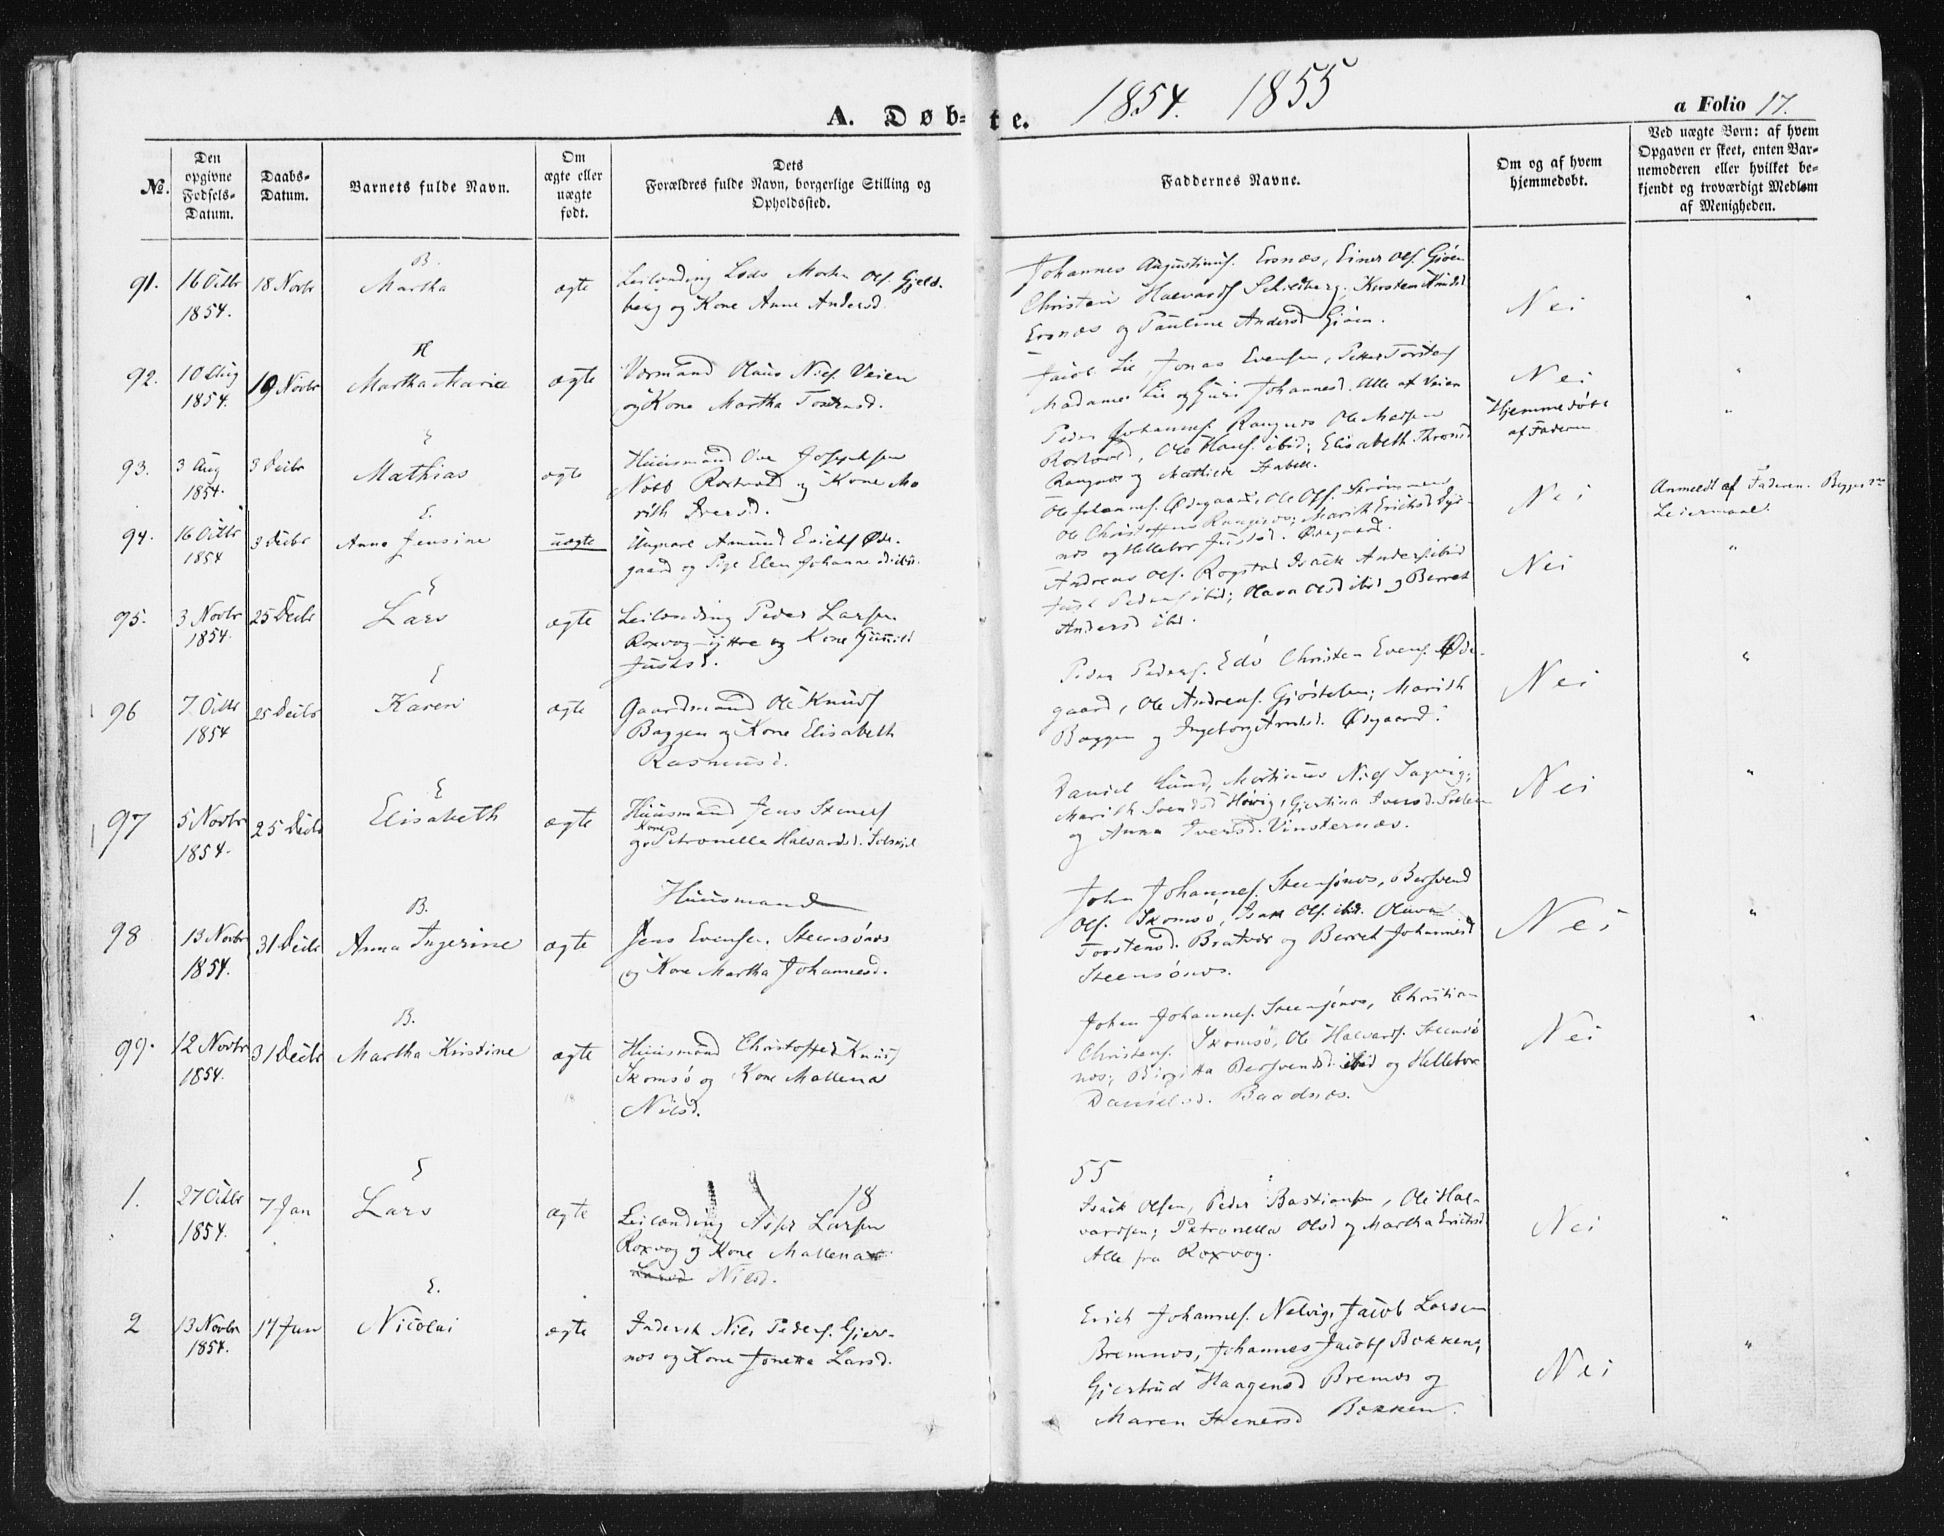 1854. 1855
A. Døbte.
a Folio 17.
No.
Den opgivne Fødsels-Datum.
Daabs-Datum.
Barnets fulde Navn.
Om ægte eller uægte født.
Dets Forældres fulde Navn, borgerlige Stilling og Opholdssted.
Faddernes Navne.
Om og af hvem hjemmedøbt.
Ved uægte Børn: af hvem Opgaven er skeet, enten Barnemoderen eller hvilket bekjendt og troværdigt Medlem af Menigheden.
B.
91. 16 Octbr 1854. 18 Novbr Martha ægte
Leilænding Lods Morten Ols. Gjeld-
berg og Kone Anne Andersd.
Johannes Augustinus. Ersnæs, Einer Ols. Gjøen
Christen Halvards
Ersnæs og Pauline Andersd Gjøen.
Nei "
H
92. 10 Aug 1854. 19 Novbr Martha Marie ægte
Olaus Niels. Veien
og Kone Martha
Jacob Lie Jonas Evensen, Petter Torstens
Madame Lie og Guri Johannesd. Alle af Veien
Nei "
E
93. 3 Aug 1854. 3 Decbr Mathias ægte
Huusmand Ove Josephsen
og Kone Ma
rith Iversd.
Peder Johannes. Rangnæs Ole Madsen
Ole Hans. ibid; Elisabeth
Rangnæs og Mathilde
Hjemmedøbt
af Faderen "
E.
94. 16 Octbr 1854 3 Decbr Anne Jensine uægte
Ungkarl Amund Erichs Øde-
gaard og Pige Elen Johannesd ibid.
Ole Johannes. Ødegaard, Ole Ols. Strømmen
Ole Christoffers Marith Erichsd
næs og Hellebor Justsd. Ødegaard.
Nei
Anmeldt af Faderen. Begges 1ste
Leiermaal.
E
95. 3 Novbr 1854. 25 Decbr Lars ægte
Leilænding Peder Larsen
Roxvog-yttre og Kone Gunild
Justsd.
Andreas Ols. Rogstad Isack Anders ibid
Just Peders ibid; Olava Olsd ibid og Berret
Andersd ibd.
Nei "
E
96 7. Octbr 1854 25 Decbr Karen ægte
Gaardmand Ole Knuds
Baggen og Kone Elisabeth
Rasmusd.
Peder Peders. Edø Christen Evens. Øde-
gaard, Ole Andreas. Gjøstølen; Marith
Baggen og Ingeborg Arntsd. Ødegaard.
Nei "
E
97 5 Novbr 1854. 25 Decbr Elisabeth ægte
Huusmand Jens Steners
og Kone Petronella Halvardsd.
Daniel Lund, Martinus Niels
Marith Svendsd Høvig, Gjertina Iversd.
og Anna Iversd. Vinsternæs.
Nei "
B.
98 13 Novbr 1854. 31 Decbr Anna Ingerine ægte
Huusmand
Jens Evensen. Steensønæs
og Kone Martha Johannesd.
John Johannes. Steensønæs, Bersvend
Ols. Skomsø, Isak Ols. ibid. Olava
Torstensd. Bratvær og Berret Johannesd
Steensønæs.
Nei "
B.
99. 12 Novbr 1854. 31 Decbr Martha Kirstine ægte
Huusmand Christoffer Knuds
Skomsø og Kone Mallena
Nilsd.
John Johannes. Steensønæs, Christian
Christens. Skomsø, Ole Halvards. Steensø
næs; Birgitta Bersvendsd. ibid og Hellebor
Danielsd. Baadnæs.
Nei "
18 55
E
1. 27 Octbr 1854. 7 Jan Lars ægte
Leilænding Larsen
Roxvog og Kone Mallena
Larsd Nilsd.
Isack Olsen, Peder Bastiansen, Ole Hal-
vardsen; Petronella Olsd og Martha Erichsd
Alle fra Roxvog.
Nei "
E.
2 13 Novbr 1854. 17 Jan Nicolai ægte
Inderst Nils Peders. Gjers-
næs og Kone Jonetta Larsd.
Erich Johannes. Nelvig, Jacob Larsen
Bremnæs, Johannes Jacobs Bekken;
Gjertrud Haagensd Bremnæs og
Maren Stenersd Bekken.
Nei "